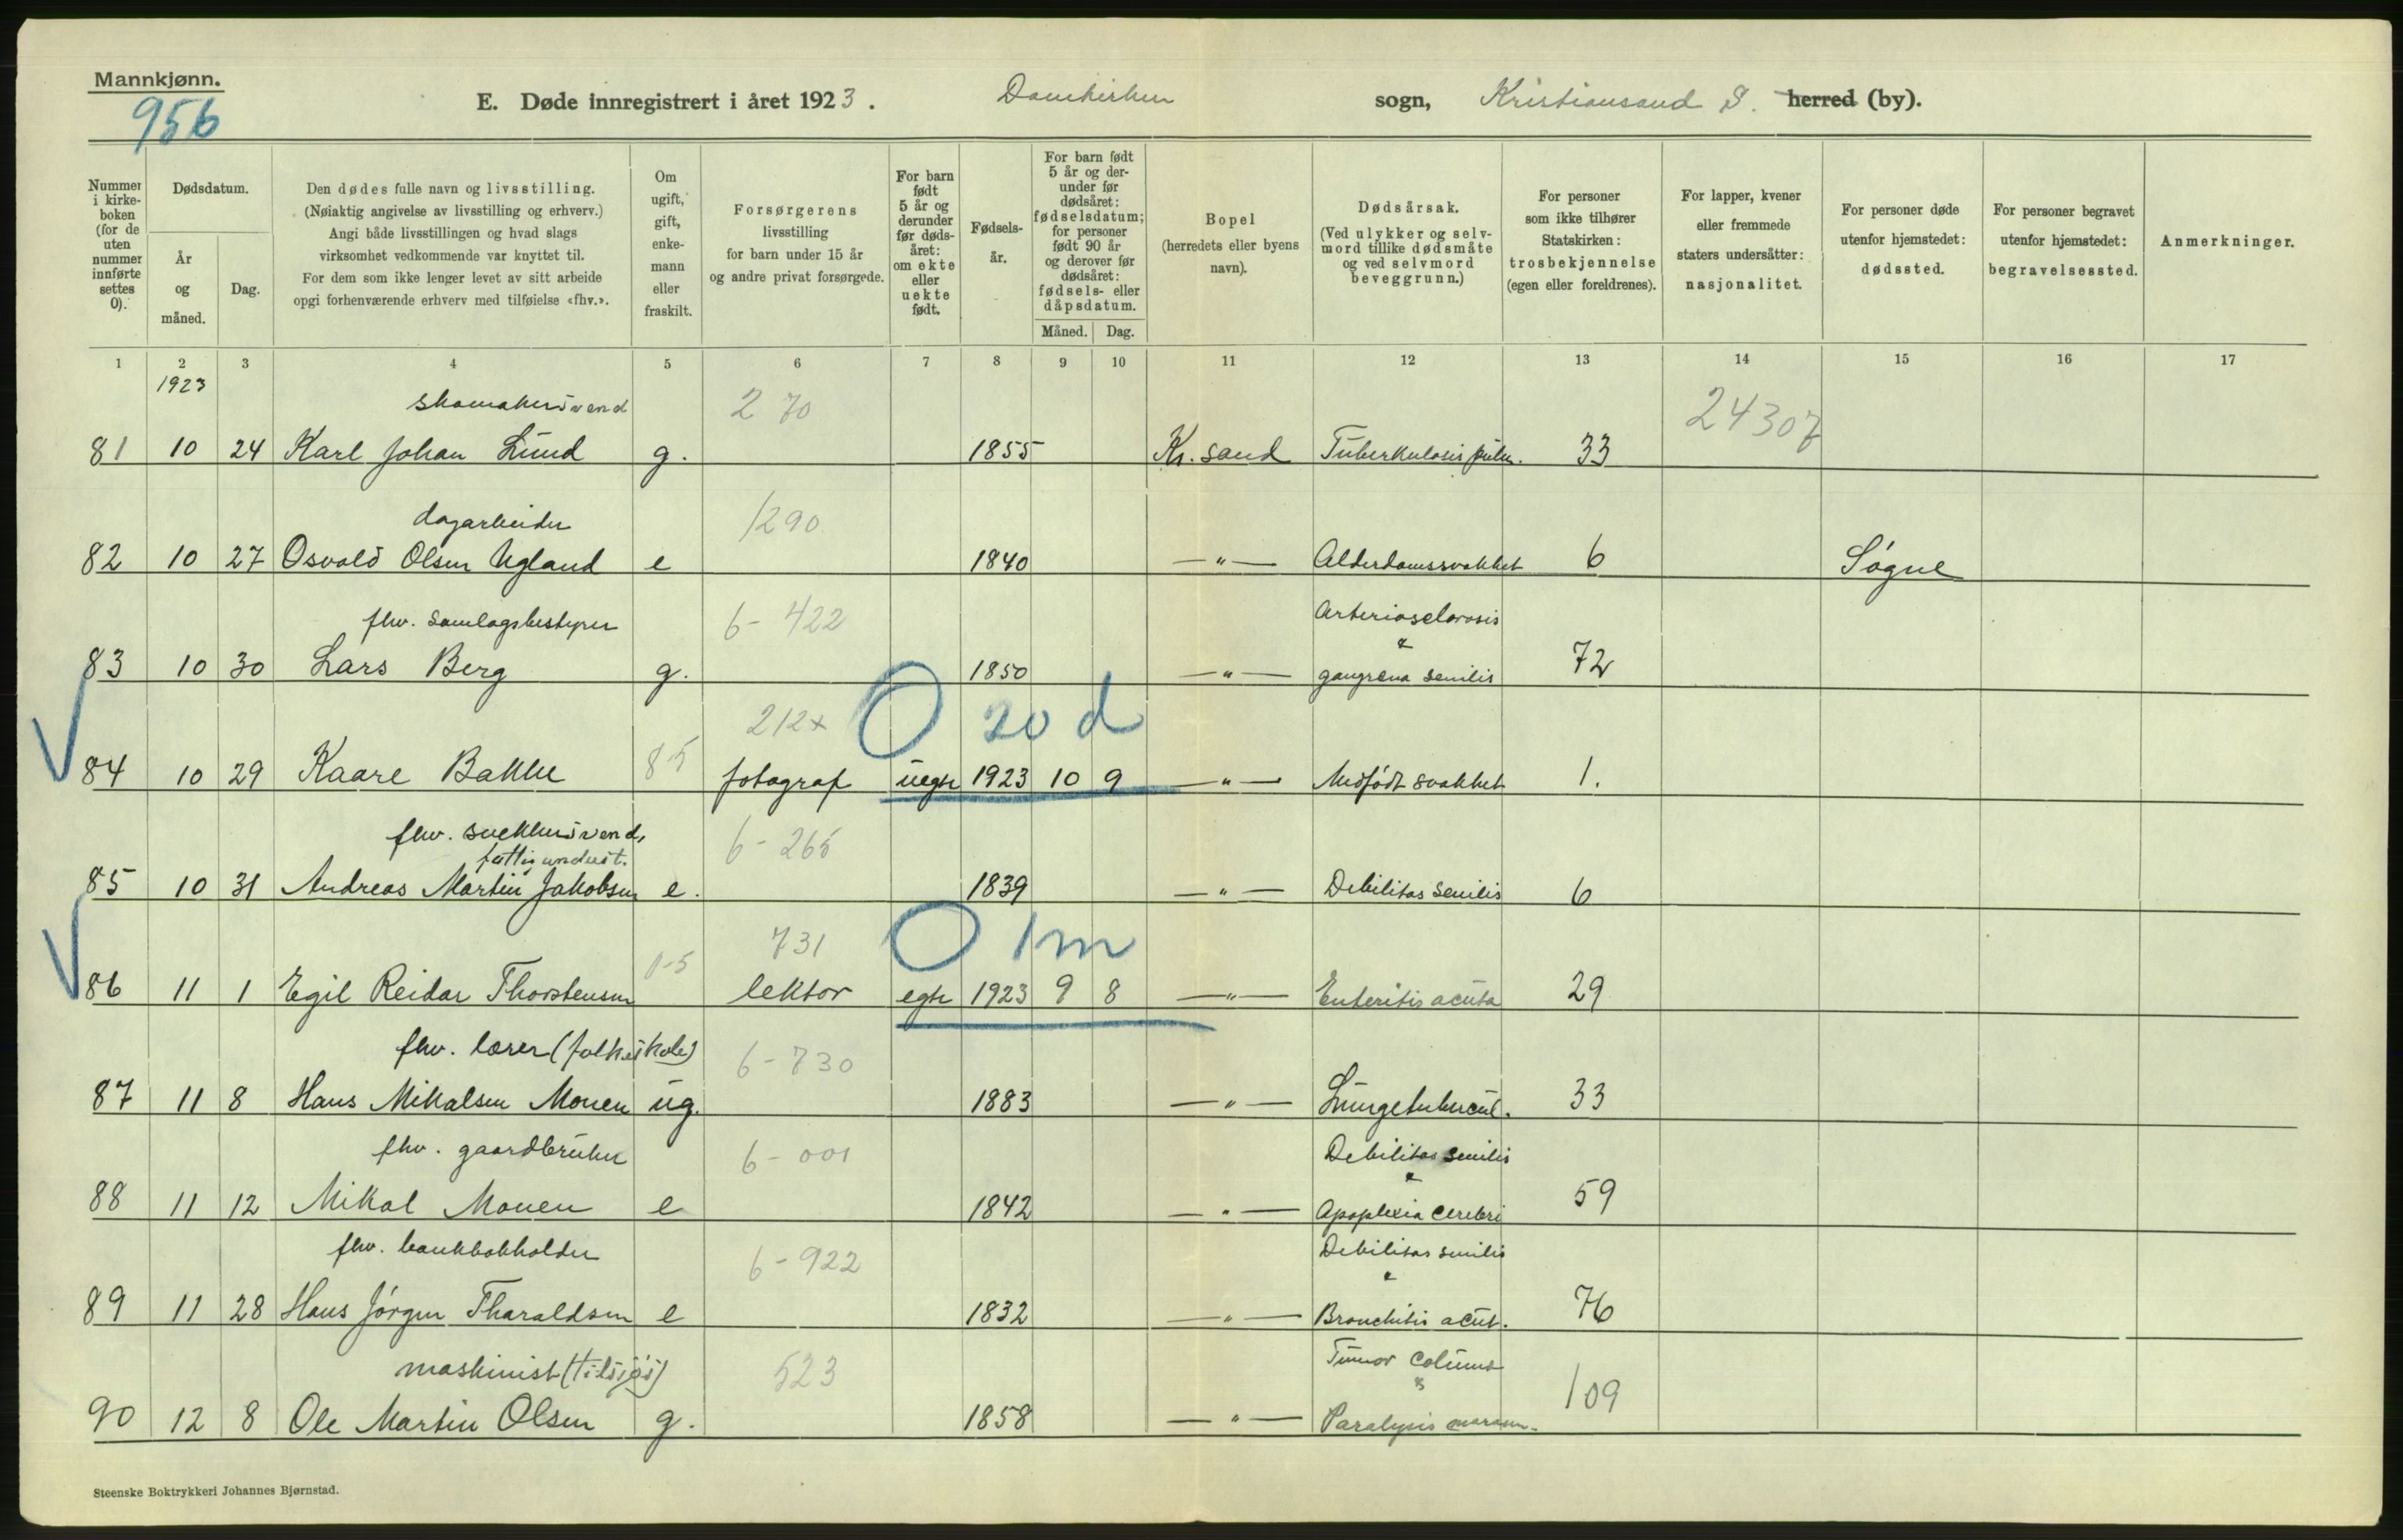 Mannkjønn.
956
E. Døde innregistrert i året 1923. Domkirken sogn, Kristiansand S. herred (by).
Nummer i kirkeboken (for de uten nummer innførte settes 0).
Dødsdatum.
År og måned.
Dag.
Den dødes fulle navn og livsstilling. (Nøiaktig angivelse av livsstilling og erhverv.) Angi både livsstillingen og hvad slags virksomhet vedkommende var knyttet til. For dem som ikke lenger levet av sitt arbeide opgi forhenværende erhverv med tilføielse «fhv.».
Om ugift, gift, enkemann eller fraskilt.
Forsørgerens livsstilling for barn under 15 år og andre privat forsørgede.
For barn født 5 år og derunder før dødsåret: om ekte eller uekte født.
Fødselsår.
For barn født 5 år og derunder før dødsåret: fødselsdatum; for personer født 90 år og derover før dødsåret: fødsels- eller dåpsdatum.
Måned. Dag.
Bopel (herredets eller byens navn).
Dødsårsak. (Ved ulykker og selvmord tillike dødsmåte og ved selvmord beveggrunn.)
For personer som ikke tilhører Statskirken: trosbekjennelse (egen eller foreldrenes).
For lapper, kvener eller fremmede staters undersåtter: nasjonalitet.
For personer døde utenfor hjemstedet: dødssted.
For personer begravet utenfor hjemstedet: begravelsessted.
Anmerkninger.
1 2 3 4 5 6 7 8 9 10 11 12 13 14 15 16 17
1923
skomakersvend 270 24307
81 10 24 Karl Johan Lund g. 1855 Kr.sand Tuberkulosis pulm. 33
dagarbeider 1290
82 10 27 Osvald Olsen Ugland e 1840 —"— Alderdomssvakhet 6 Søgne
fhv. samlagsbestyrer 6-422 Arteriosclerosis
&
83 10 30 Lars Berg g. 1850 —"— gangrena senilis 72
212x 0 20 d
84 10 29 Kaare Bakke fotograf uegte 1923 10 9 —"— Medfødt svakhet 1.
fhv. snekkersvend, 6-265
fattigunderst.
85 10 31 Andreas Martin Jakobsen e. 1839 —"— Debilitas senilis 6
731 0 1m
86 11 1 Egil Reidar Thorstensen lektor egte 1923 9 8 —"— Enteritis acuta 29
fhv. lærer (folkeskole) 6-730
87 11 8 Hans Mikalsen Monen ug. 1883 —"— Lungetubercul. 33
fhv. gaardbruker 6-001 Debilitas senilis
&
88 11 12 Mikal Monen e 1842 —"— Apoplexia cerebri 59
fhv. bankbokholder 6-922 Debilitas senilis
&
89 11 28 Hans Jørgen Tharaldsen e 1832 —"— Bronchitis acut. 76
maskinist (tilsjøs) 523 Tumor column
&
90 12 8 Ole Martin Olsen g. 1858 —"— Paralysis 109
Steenske Boktrykkeri Johannes Bjørnstad.